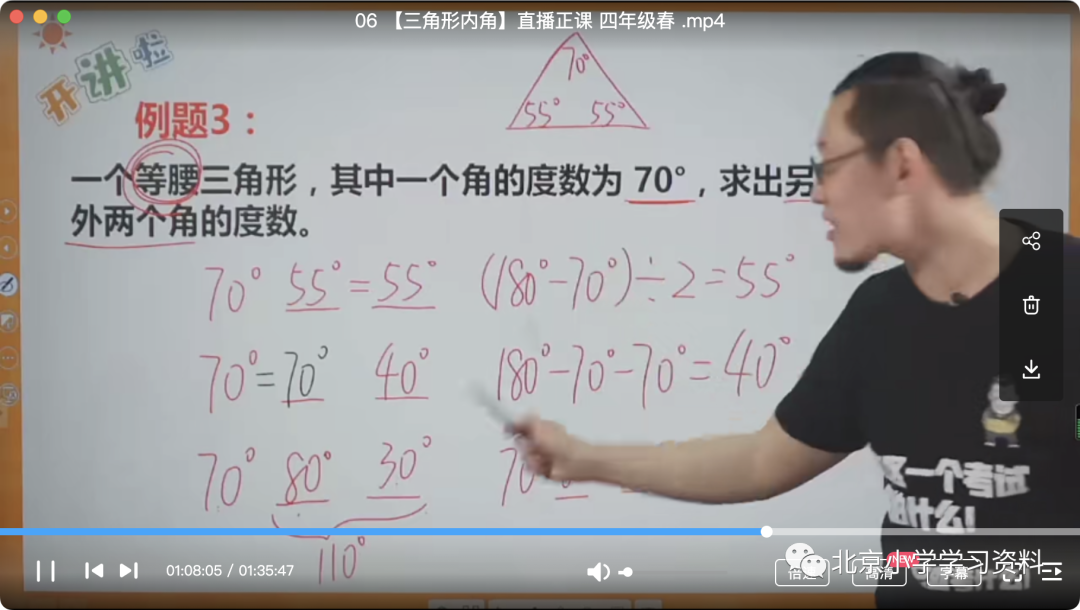 06 【三角形内角】直播正课 四年级春 .mp4
开讲啦
70°
55° 55°
例题3：
一个等腰三角形，其中一个角的度数为 70°，求出另
外两个角的度数。
70° 55° = 55° (180°-70°)÷2=55°
70°=70° 40° 180°-70°-70°=40°
70° 80° 30° 70°
110°
一个考试
什么!
01:08:05 / 01:35:47
倍速
高清
NEW
字幕
北京小学学习资料